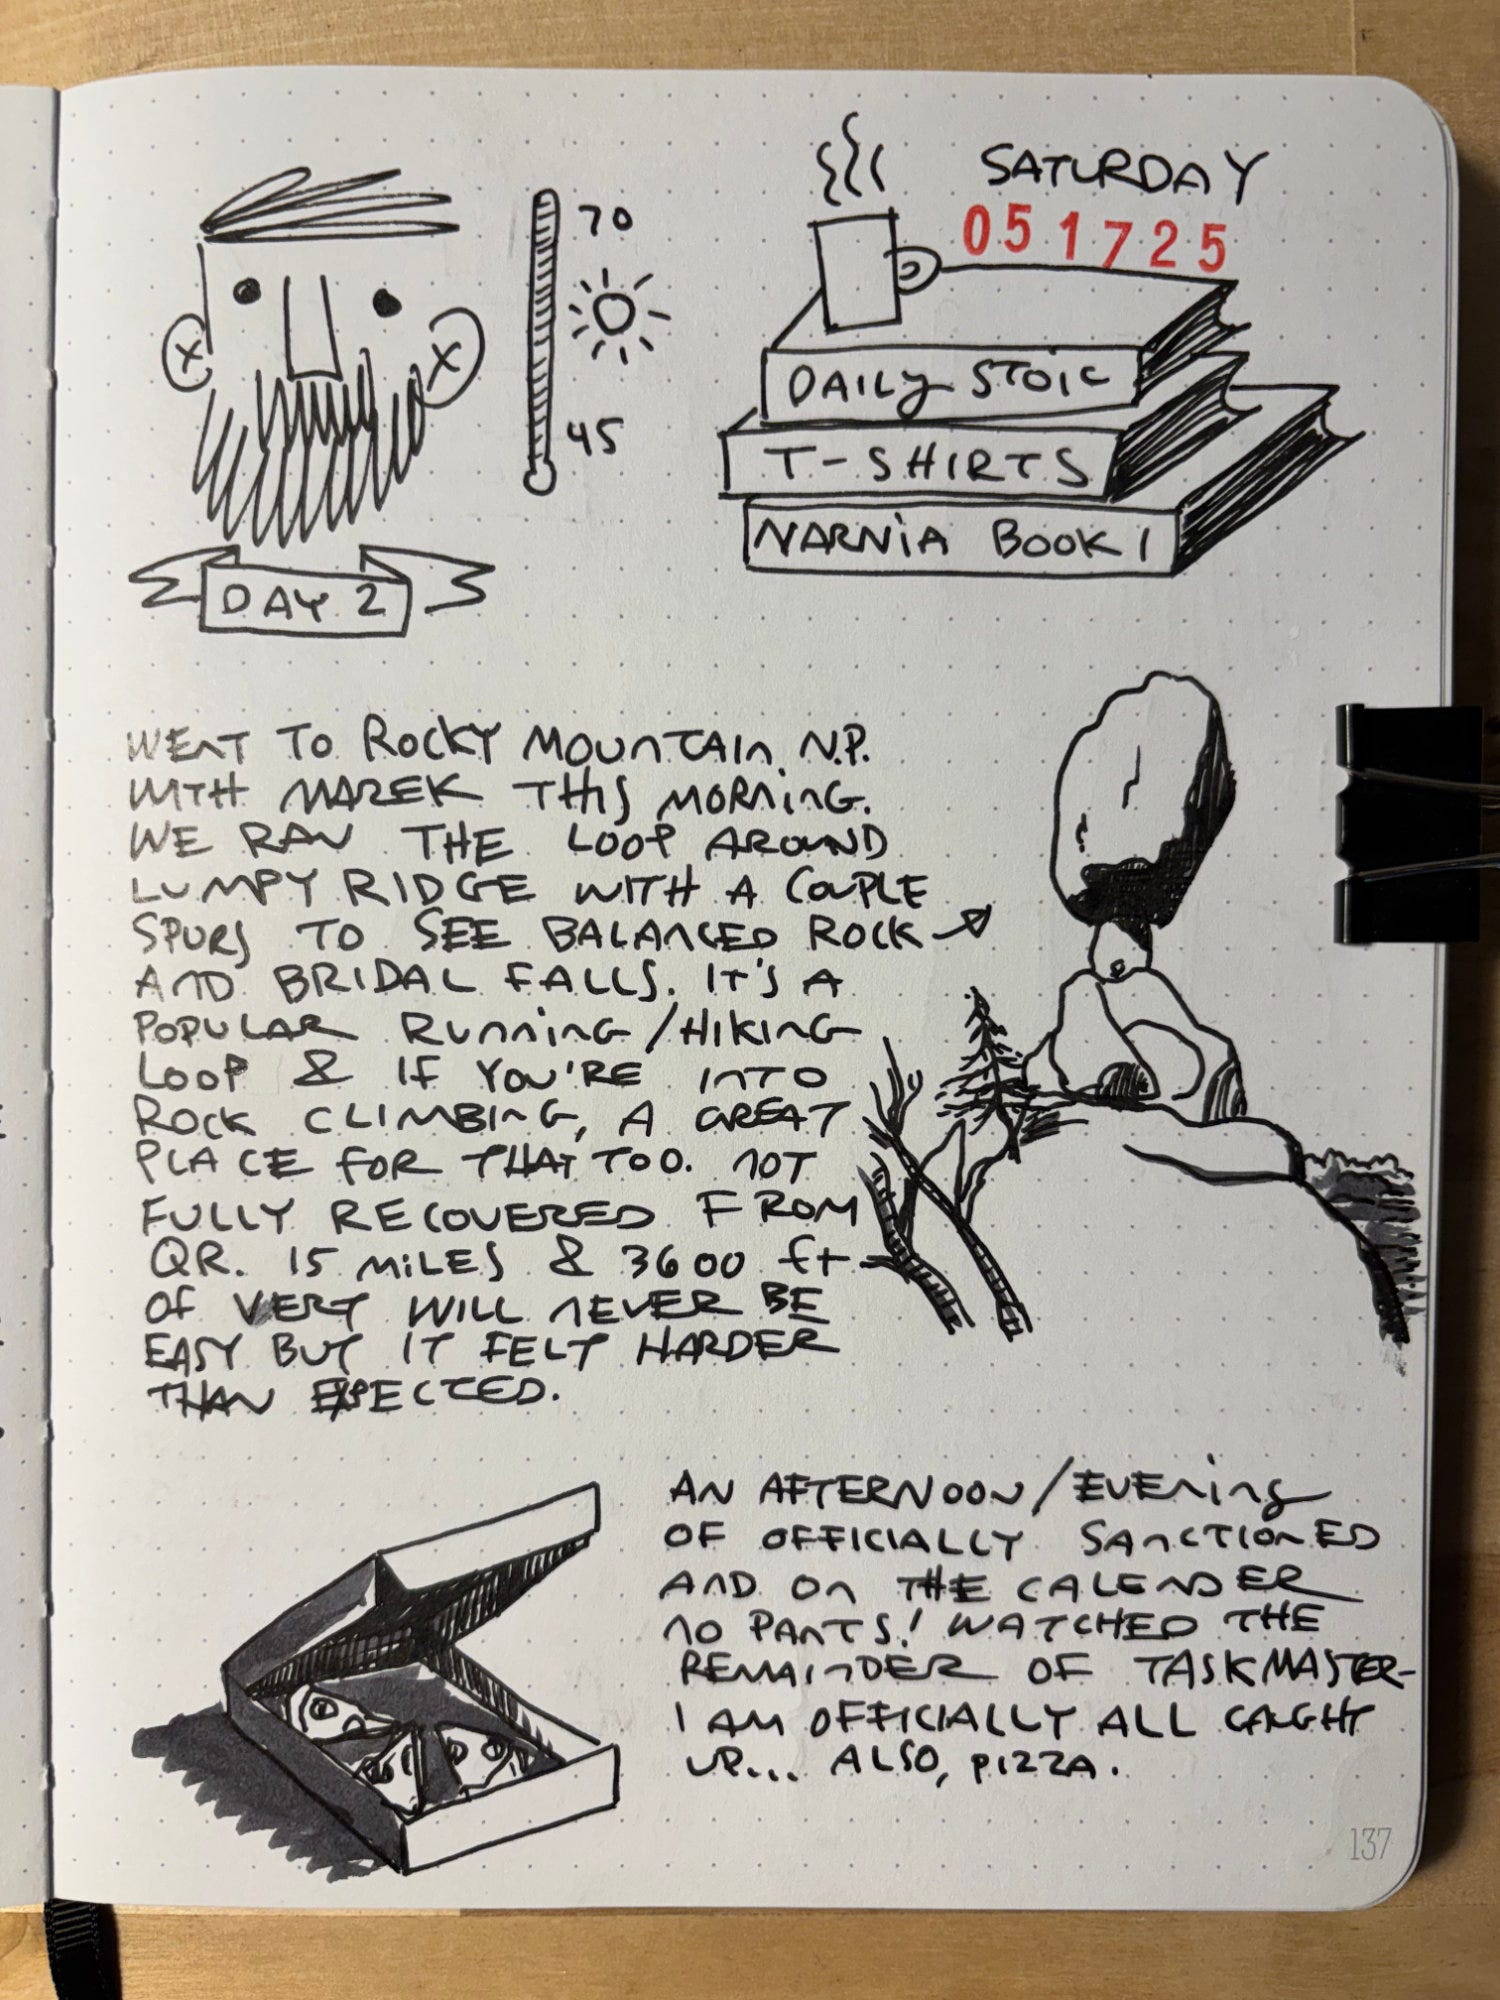 SATURDAY
051725
70
45
DAILY STOIC
T-SHIRTS
NARNIA BOOK 1
DAY 2
WENT TO ROCKY MOUNTAIN N.P.
WITH MAREK THIS MORNING.
WE RAN THE LOOP AROUND
LUMPY RIDGE WITH A COUPLE
SPURS TO SEE BALANCED ROCK
AND BRIDAL FALLS. IT'S A
POPULAR RUNNING/HIKING
LOOP & IF YOU'RE INTO
ROCK CLIMBING, A GREAT
PLACE FOR THAT TOO. NOT
FULLY RECOVERED FROM
QR. 15 MILES & 3600 ft
OF VERT WILL NEVER BE
EASY BUT IT FELT HARDER
THAN EXPECTED.
AN AFTERNOON/EVENING
OF OFFICIALLY SANCTIONED
AND ON THE CALENDER
NO PANTS! WATCHED THE
REMAINDER OF TASKMASTER-
I AM OFFICIALLY ALL CAUGHT
UP... ALSO, PIZZA.
137